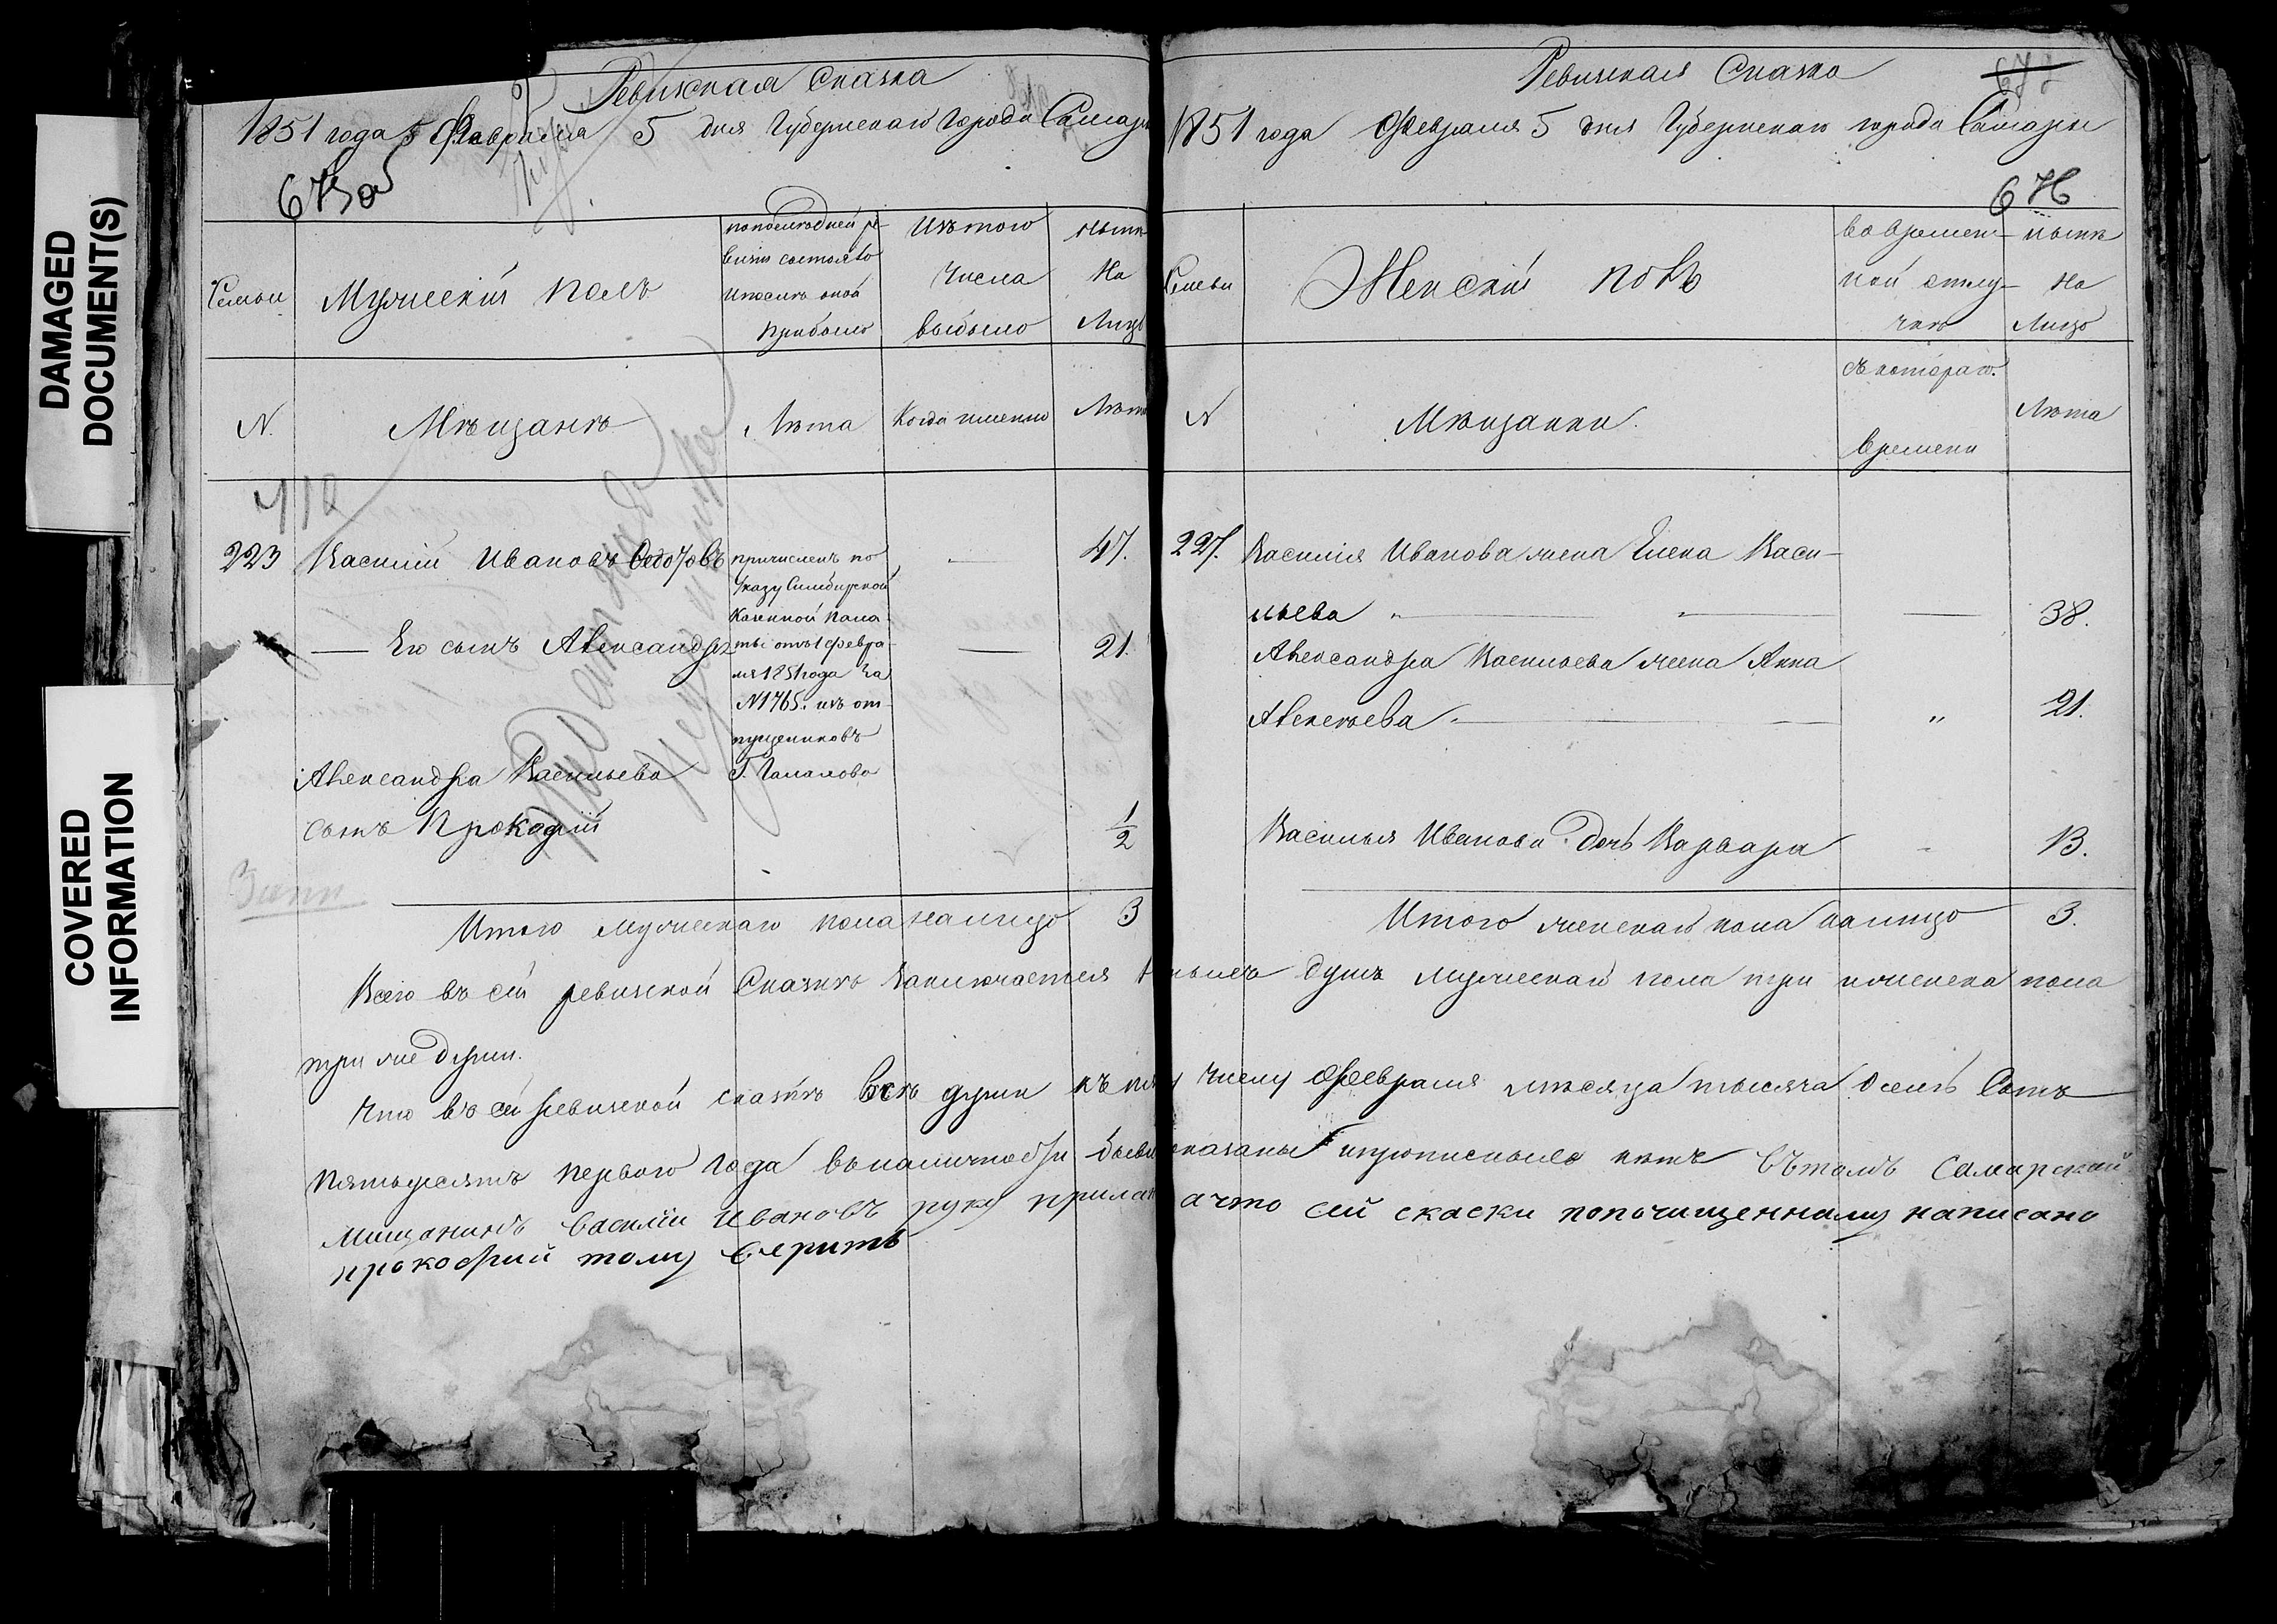 DAMAGED
DOCUMENT(S)
COVERED
INFORMATION
Ревизская Сказка
1851 года Февраля 5 дня Губернскаго Города Самары
673 об
Семьи
Мужескій полъ
по последней ре-
визіи состояло
и после оной
прибыло
Изъ того
числа
выбыло
Ныне
На
Лицо
N.
Мѣщанъ
Лѣта
Когда именно
Лѣта
223 Василій Ивановъ
причисленъ по
указу Симбирской
Казенной Пала
ты отъ 1 Февра
ля 1851 года за
N 1765. изъ от
пущениковъ
Г.
47.
Его сынъ Александръ
21.
Александра Васильева
сынъ Прокофій
1/2
Итого мужескаго пола налицо 3
Ревизская Сказка
1851 года Февраля 5 дня Губернскаго города Самары
674
Семьи
Женскій полъ
во времен-
ной отлу-
чкѣ
ныне
На
Лицо
N
Мѣщанки.
съ котораго.
Времени
Лѣта
227. Василія Иванова жена Елена Васи-
льева 38.
Александра Васильева жена Анна
Алексѣева " 21.
Василья Иванова дочь Варвара 13.
Итого женскаго пола налицо 3.
Всего въ сей ревизской Сказкѣ заключается душъ мужескаго пола три женска пола
три же души.
Что въ сей Ревизской сказкѣ всѣ души къ числу Февраля мѣсяца тысяча восемь Сотъ
пятьдесятъ перваго года въ наличности были показаны и прописныхъ нѣтъ въ томъ Самарскій
мищанинъ Василій Ивановъ руку прилаж а что сей скаски попочищенному написано
прокофий тому верить